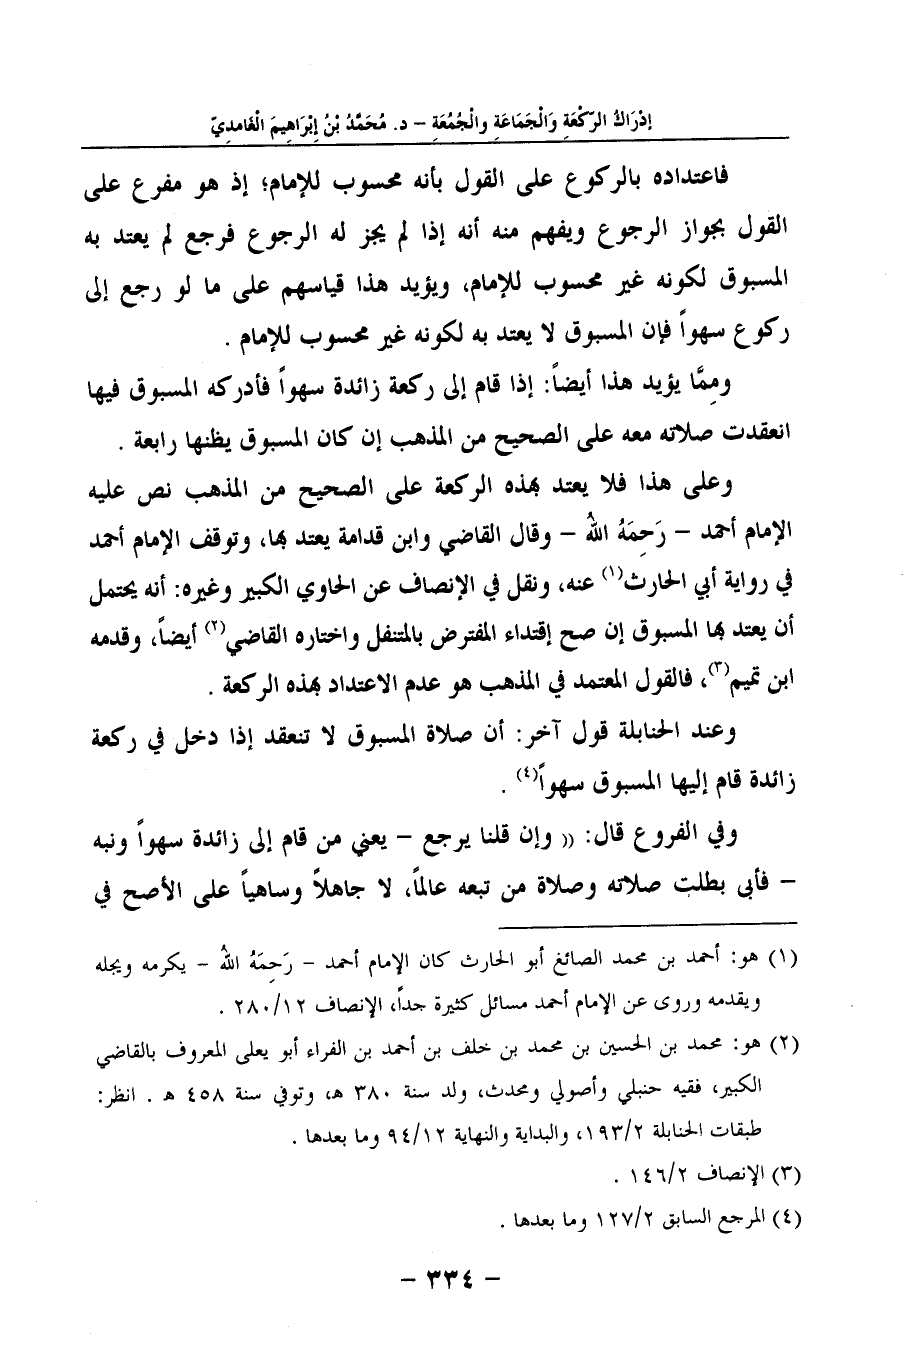 إدْرَاكُ الرَّكْعَةِ وَالْجَمَاعَةِ والْجُمُعَةِ – د. مُحَمَّدُ بْنُ إِبْرَاهِيمَ الْغَامديّ
فاعتداده بالركوع على القول بأنه محسوب للإمام؛ إذ هو مفرع على
القول بجواز الرجوع ويفهم منه أنه إذا لم يجز له الرجوع فرجع لم يعتد به
المسبوق لكونه غير محسوب للإمام، ويؤيد هذا قياسهم على ما لو رجع إلى
ركوع سهواً فإن المسبوق لا يعتد به لكونه غير محسوب للإمام .
ومِمَّا يؤيد هذا أيضاً: إذا قام إلى ركعة زائدة سهواً فأدركه المسبوق فيها
انعقدت صلاته معه على الصحيح من المذهب إن كان المسبوق يظنها رابعة .
وعلى هذا فلا يعتد بهذه الركعة على الصحيح من المذهب نص عليه
الإمام أحمد – رَحِمَهُ اللهُ – وقال القاضي وابن قدامة يعتد بها، وتوقف الإمام أحمد
في رواية أبي الحارث(١) عنه، ونقل في الإنصاف عن الحاوي الكبير وغيره: أنه يحتمل
أن يعتد بها المسبوق إن صح إقتداء المفترض بالمتنفل واختاره القاضي(٢) أيضاً، وقدمه
ابن تميم(٣)، فالقول المعتمد في المذهب هو عدم الاعتداد بهذه الركعة .
وعند الحنابلة قول آخر: أن صلاة المسبوق لا تنعقد إذا دخل في ركعة
زائدة قام إليها المسبوق سهواً(٤) .
وفي الفروع قال: (( وإن قلنا يرجع – يعني من قام إلى زائدة سهواً ونبه
– فأبى بطلت صلاته وصلاة من تبعه عالماً، لا جاهلاً وساهياً على الأصح في
(١) هو: أحمد بن محمد الصائغ أبو الحارث كان الإمام أحمد – رَحِمَهُ اللهُ – يكرمه ويجله
ويقدمه وروى عن الإمام أحمد مسائل كثيرة جداً، الإنصاف ٢٨٠/١٢ .
(٢) هو: محمد بن الحسين بن محمد بن خلف بن أحمد بن الفراء أبو يعلى المعروف بالقاضي
الكبير، فقيه حنبلي وأصولي ومحدث، ولد سنة ٣٨٠ هـ، وتوفي سنة ٤٥٨ هـ . انظر:
طبقات الحنابلة ١٩٣/٢، والبداية والنهاية ٩٤/١٢ وما بعدها .
(٣) الإنصاف ١٤٦/٢ .
(٤) المرجع السابق ١٢٧/٢ وما بعدها .
– ٣٣٤ –